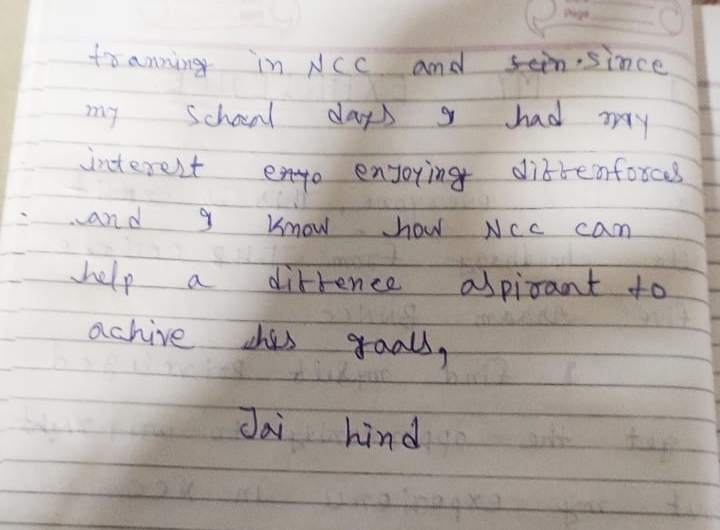 tranning in NCC and sein. since
my school days I had my
interest enyo enjoying diffenforces
and I know how NCC can
help a diffence aspirant to
achive his goals,
Jai hind